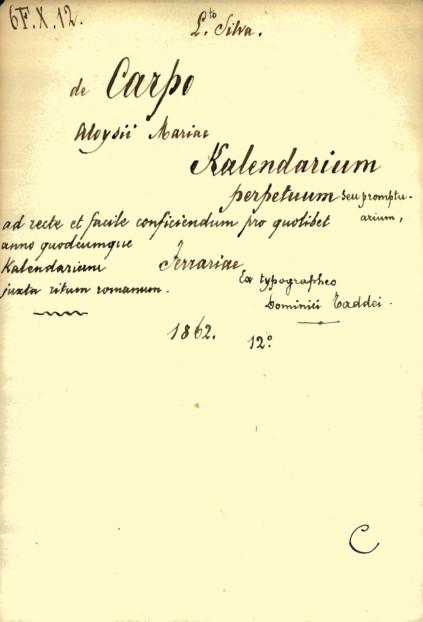 6F.X.12.
L.to Silva.
de Carpo
Aloysii Mariae
Kalendarium
perpetuum seu promptu-
arium,
ad recte et facile conficiendum pro quolibet
anno quodcumque
Kalendarium Ferrariae
juxta ritum romanum.
Ex typographeo
Dominici Taddei.
1862. 12°
C